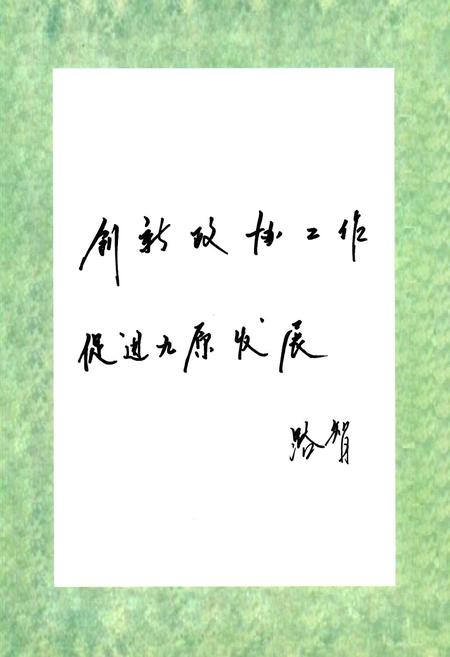 创新政协工作
促进九原发展
路智